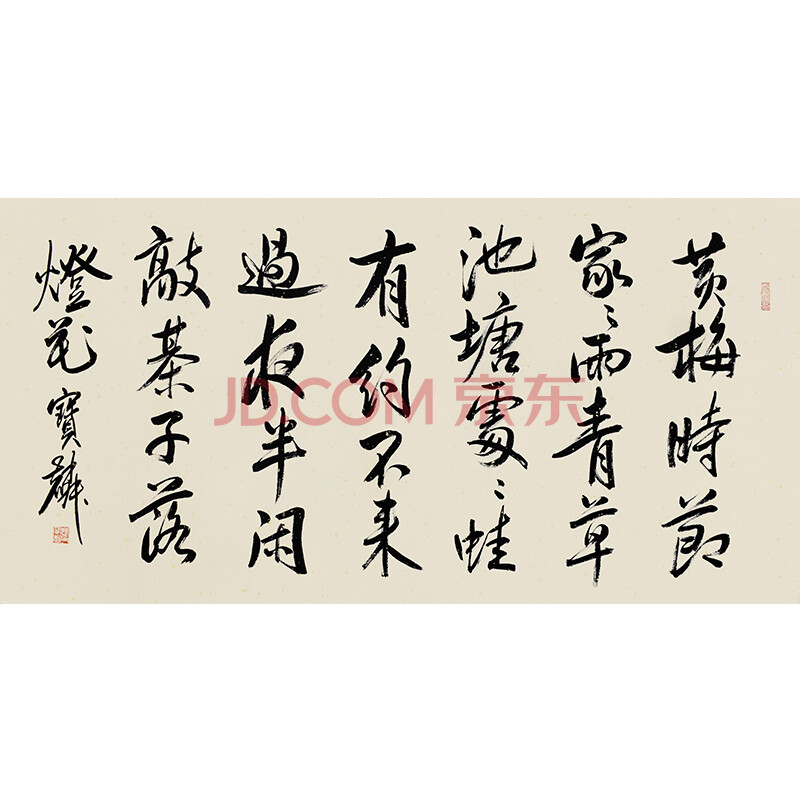 黄梅時節
家〻雨青草
池塘處〻蛙
有約不来
過夜半闲
敲棊子落
燈花 寶麟
JD.COM 京东